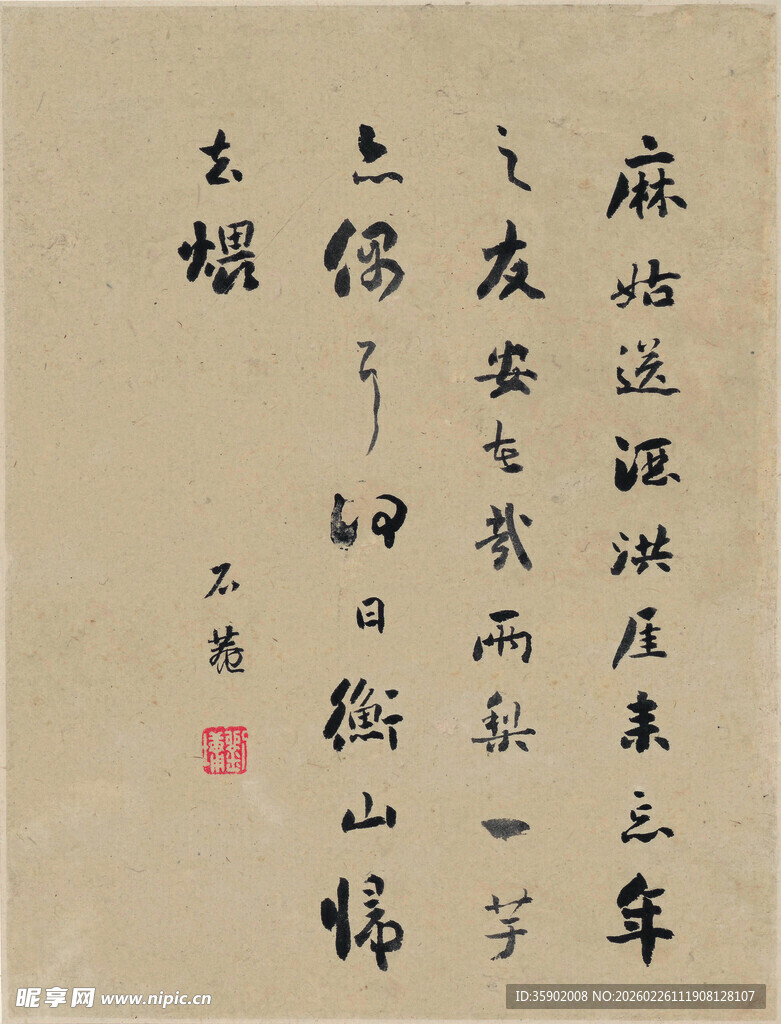 麻姑送酒洪厓来忘年
之友安在哉两梨一芋
亦偶尔何日衡山归
去煨
石菴
刘墉
昵享网 www.nipic.cn
ID:35902008 NO:20260226111908128107